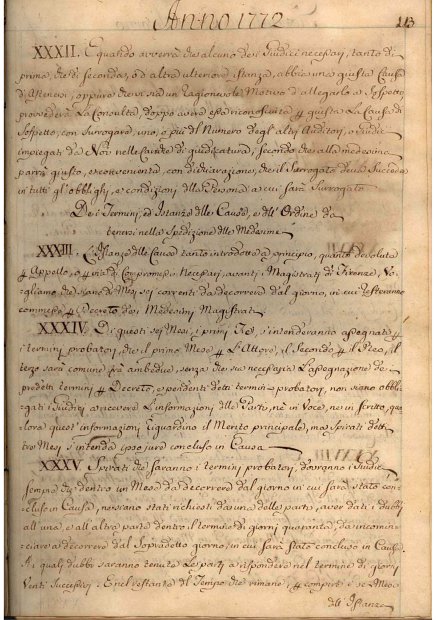 Anno 1772
113
XXXII. E quando avverrà che alcuno dei Giudici necessarj, tanto di
prima, che di seconda, ò d'altra ulteriore Istanza, abbia una giusta Causa
di Astenersi, oppure che vi sia un ragionevole Motivo d'allegarlo a Sospetto
provvederà La Consulta, doppo avere essa riconosciuta p giusta La Causa di
Sospetto, con Surrogare, uno, o più del Numero degl'altri Auditori, o Giudici
impiegati da Noi nelle Cariche di giudicatura, secondo che alla medesima
parrà giusto, e conveniente, con dichiarazione, che il Surrogato deva Succedere
in tutti gl'obblighi, e condizioni della Persona a cui sarà Surrogato
Dei Termini, ed Istanze delle Cause, e dell'Ordine da
tenersi nella Spedizione delle Medesime
XXXIII. L'Istanze delle Cause tanto introdotte a principio, quanto devolute
p Appello, o p via di Compromessi Necessarj, avanti i Magistrati di Firenze, Vo,,
gliamo che siano di Mesi sei correnti da decorrere dal giorno, in cui resteranno
commesse p Decreto dei Medesimi Magistrati
XXXIV. Di questi sei Mesi, i primi Tre, s'intenderanno assegnati p
i termini probatorj, cioè il primo Mese p L'Attore, il Secondo p il Reo, il
terzo sarà comune frà ambedue, senza che sia necessaria L'assegnazione de
predetti termini p Decreto, e pendenti detti termini probatorj, non siano obbli,,
gati i Giudici a ricevere L'informazioni delle Parti, nè in Voce, nè in scritto, qua,,
lora quest'informazioni riguardino il Merito principale, ma spirati detti
tre Mesi s'intenda ipso jure concluso in Causa
XXXV. Spirati che saranno i termini probatorj, dovranno i Giudici
sempre che dentro un Mese da decorrere dal giorno in cui sarà stato con,,
cluso in Causa, ne siano stati richiesti da una delle parti, aver dati i dubbj
all'una, e all'altra parte dentro il termine di giorni quaranta, da incomin,,
ciare a decorrere dal Sopradetto giorno, in cui sarà stato concluso in Causa,
Ai quali dubbi saranno tenute Le parti a rispondere nel termine di giorni
Venti Successivi. E nel restante di Tempo che rimane, p compire i sei Mesi
dell'Istanza